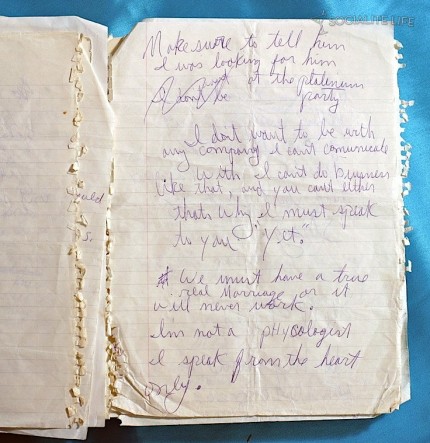 SOCIALITE LIFE
Make sure to tell him
I was looking for him
at the platinum
I dont be party
I dont want to be with
any company I cant comunicate
With I cant do business
like that, and you cant either
thats why I must speak
to you
We must have a true
real Marriage or it
will never work.
Im not a phycologist
I speak from the heart
only.